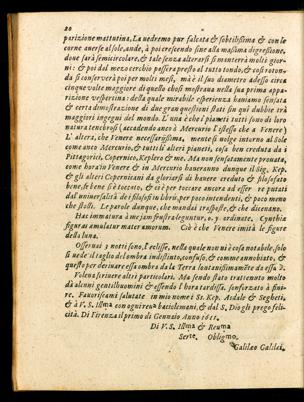 20
parizione mattutina, La uedremo pur falcata & sottilissima & con le
corne auerse al sole, ande, à poi cresendo sine alla massima digressione,
doue sarà semicircolare, & tale senza alterarsi si monterrà molti gior-
ni: & poi dal mezo cerchio passerà presto al tutto tondo, & cosi roton-
da si conserverà poi per molti mesi, ma è il suo diametro adesso circa
cinque volte maggiore di quello chessi mostraua nella sua prima appa-
rizione vespertina: della quale mirabile esperienza hauiamo sensata
& certa dimostrazione di due gran questioni state sin qui dubbie trà
maggiori ingegni del mondo. L'una è che i pianeti tutti sono di loro
natura tenebrosi (accadendo anco à Mercurio l'istesso che a Venere)
L'altra, che Venere necessariissimamente si volge intorno al Sole
come anco Mercurio, & tutti li altri pianeti, cosa ben creduta da i
Pittagorici, Copernico, Keplero & me. Ma non sensatamente prouata,
come hora in Venere & in Mercurio haueranno dunque il Sig. Kep.
& gli altri Copernicani da gloriarsi di hauere creduto & filosofato
bene, se bene si è toccato, & ci è per toccare ancora ad esser reputati
dal uniuersalità de i filosofi in libris, per poco intendenti, & poco meno
che stolti. Le parole dunque, che mandai trasposte, & che diceuano.
Hæc immatura à me jam frustra leguntur, o. y. ordinate. Cynthiæ
figuras æmulatur mater amorum. Ciò è che Venere imità le figure
della luna.
Osseruai 3 notti sono, l'eclisse, nella quale non ui è cosa notabile, solo
si uede il taglio del ombra indistinto, confuso, & comme annobiato, &
questo per deriuare essa ombra da la Terra lontanissima mẽte da essa ☽.
Voleua scriuere altri particolari. Ma sendo stato trattenuto molto
dà alcuni gentilhuomini & essendo l'hora tardissa. son forzato à fini-
re. Fauoriscami salutate in mio nome i SS. Kep. Asdale & Segheti,
& à V. S. Illma con ogni reuza bacio le mani, & dal S. Dio gli prego feli-
cità. Di Firenza il primo di Gennaio Anno 1611.
Di V. S. Illma & Reuma
Serte. Obligmo.
Galileo Galilei.